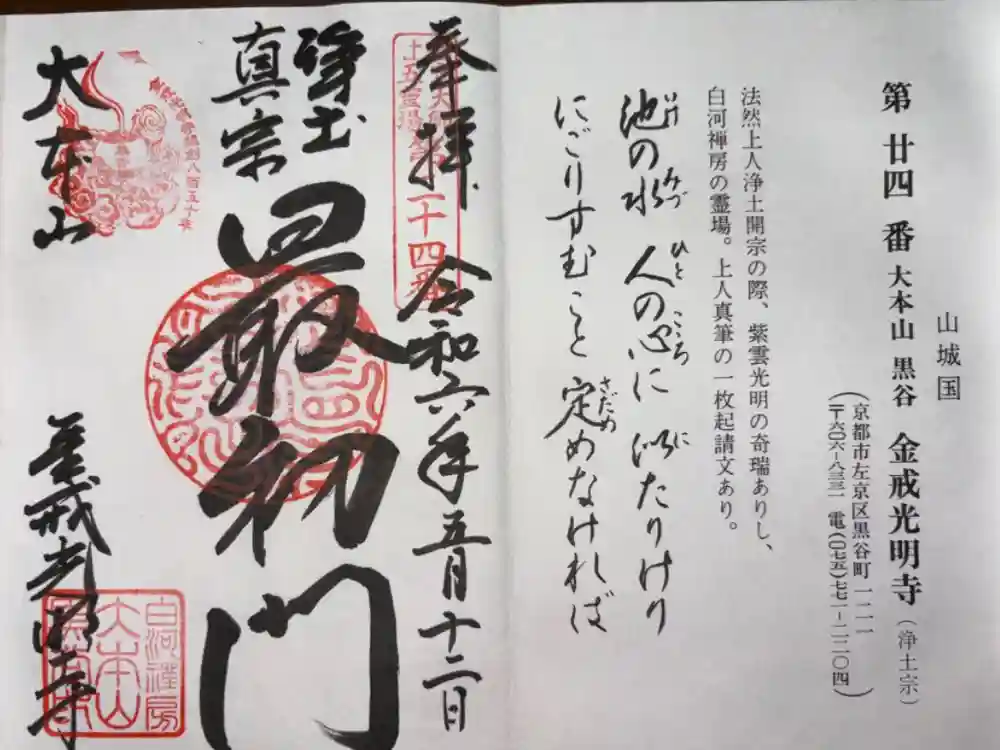 山城国
第廿四番 大本山 黒谷 金戒光明寺(浄土宗)
(京都市左京区黒谷町一二一
〒六〇六-八三三一 電(〇七五)七七一-二二〇四)
法然上人浄土開宗の際、紫雲光明の奇瑞ありし、
白河禅房の霊場。上人真筆の一枚起請文あり。
池の水 人の心に 似たりけり
いけ みづ ひと こころ に
にごりすむこと 定めなければ
さだめ
奉拝 令和六年五月十二日
二十四番
浄土
真宗
最初門
大本山
八百五十年
金戒光明寺
白河禅房
大本山